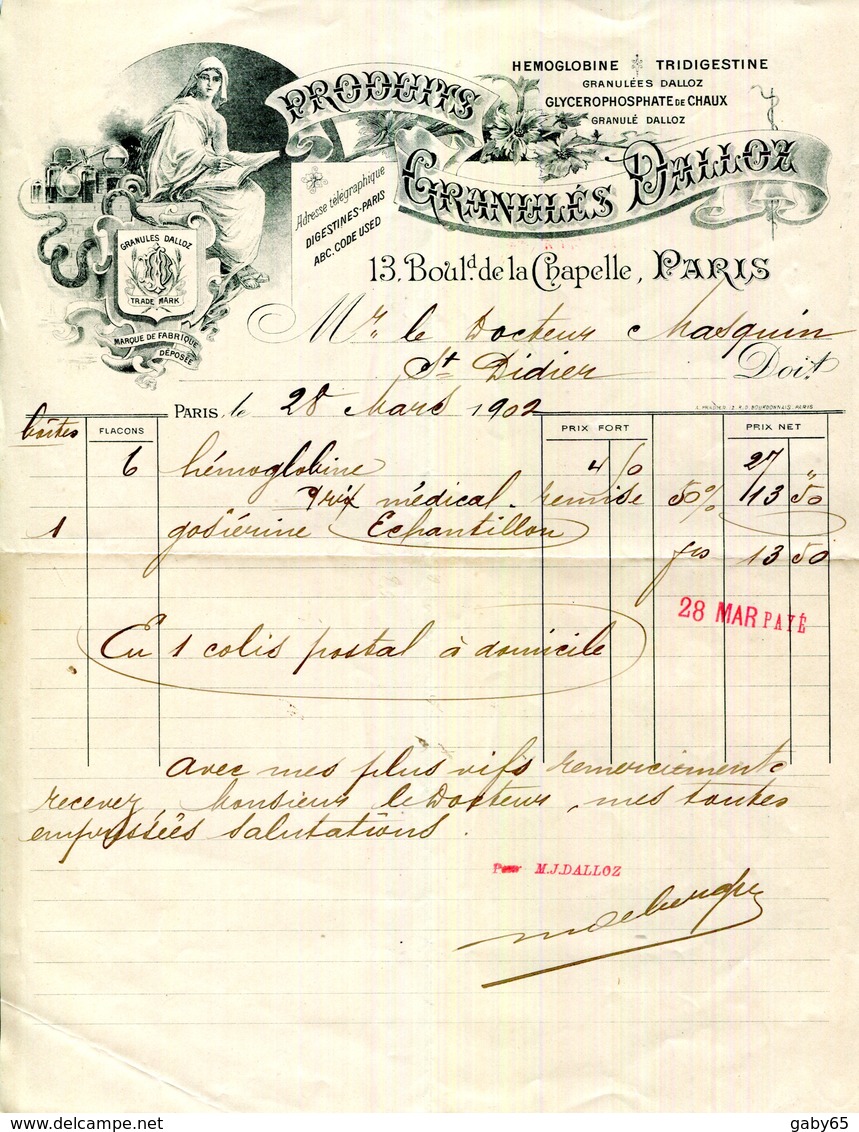 HEMOGLOBINE TRIDIGESTINE
GRANULÉES DALLOZ
GLYCEROPHOSPHATE DE CHAUX
GRANULÉ DALLOZ
PRODUITS
GRANULÉS DALLOZ
Adresse télégraphique
DIGESTINES-PARIS
A.B.C. CODE USED
GRANULES DALLOZ
TRADE MARK
MARQUE DE FABRIQUE
DÉPOSÉE
13, Boul.d de la Chapelle, PARIS
Mr. le Docteur Masquin
St Didier Doit
PARIS, le 28 Mars 1902
boîtes FLACONS PRIX FORT PRIX NET
6 hémoglobine 4 50 27 "
Prix médical. remise 50% 13 50
1 gosiérine Echantillon
frs 13 50
28 MAR PAYÉ
En 1 colis postal à domicile
avec mes plus vifs remerciements
recevez, Monsieur le Docteur, mes toutes
empressées salutations.
Pour M.J.DALLOZ
gaby65